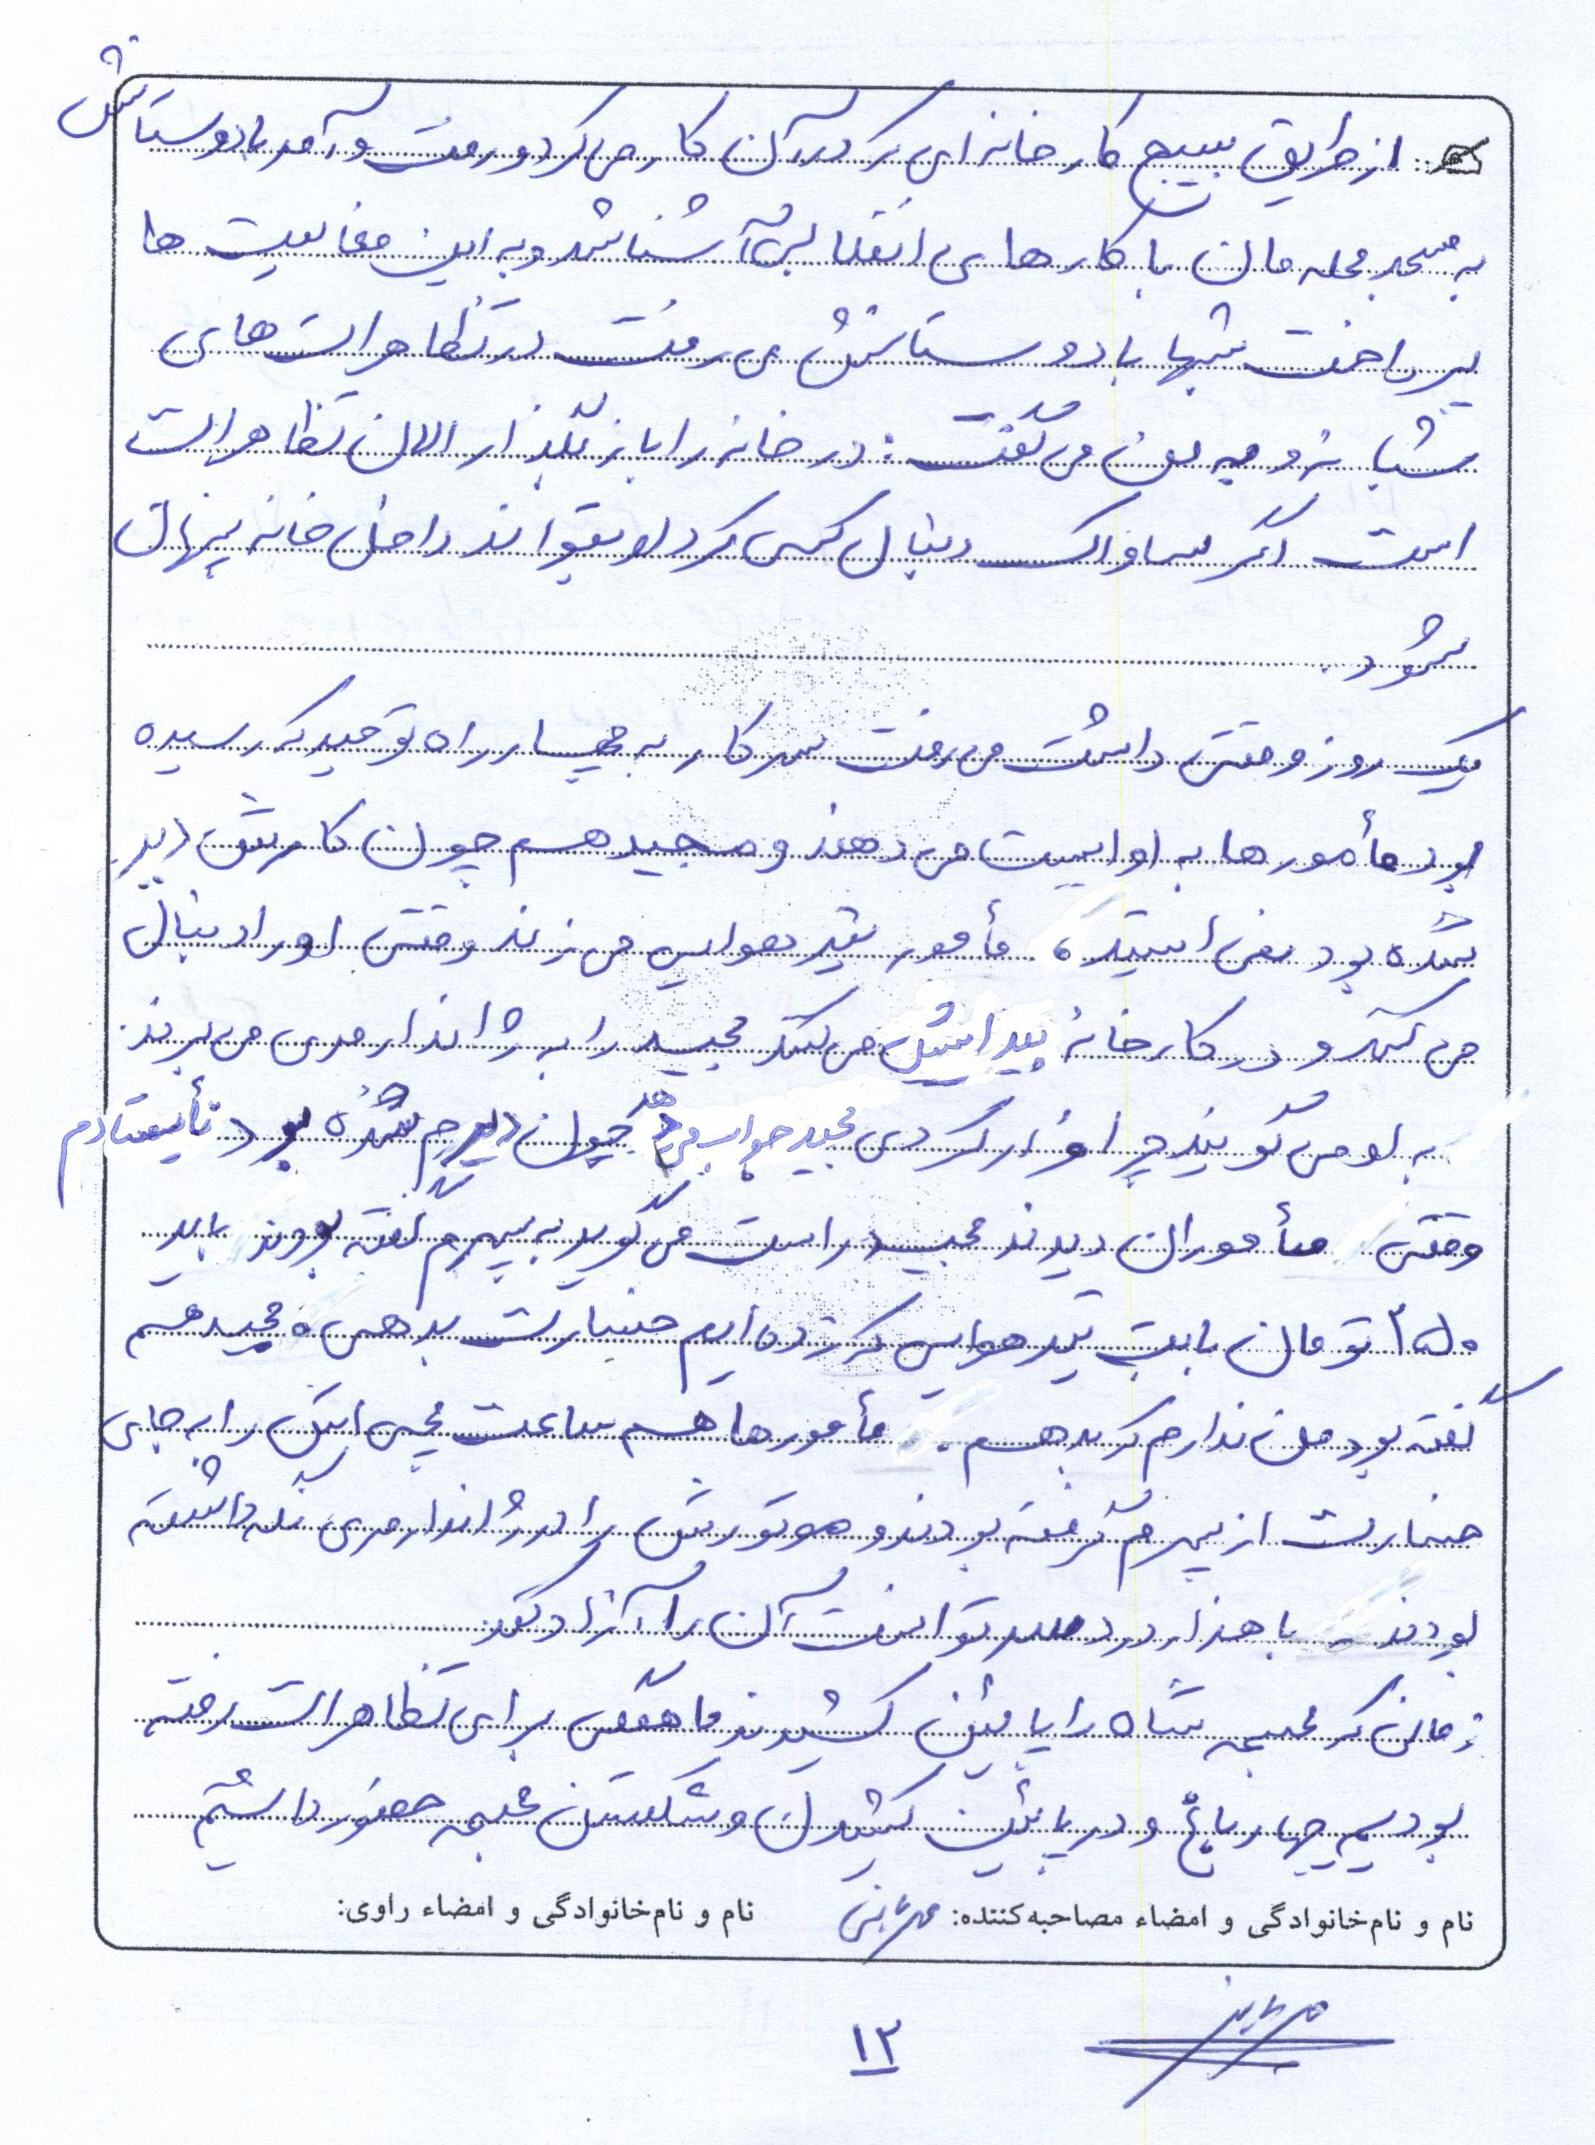 از طریق بسیج کارخانه‌ای که در آن کار می‌کرد و رفت و آمد با دوستانش
به مسجد محله مان با کارهای انقلابی آشنا شد و به این فعالیت ها
پرداخت شبها با دوستانش می رفت در تظاهرات های
شبانه و به من می گفت: در خانه را باز بگذار الان تظاهرات
است اگر ساواک دنبال کسی کرد او بتواند داخل خانه پنهان
شود.
یک روز وقتی داشت می رفت سر کار به چهار راه توحید که رسیده
بود مأمورها به او ایست می دهند و مجید هم چون کارش دیر
شده بود نمی ایستد، مأمور تیر هوایی می زند وقتی او را دنبال
می کند و در کارخانه پیدایش می کند مجید را به ژاندارمری می برند.
به او می گویند چرا فرار کردی مجید جواب می دهد چون دیرم شده بود نأیستادم
وقتی مأموران دیدند مجید راست می گوید به پسرم گفته بودند باید
۲۵۰ تومان بابت تیر هوایی که زده ایم خسارت بدهی، مجید هم
گفته بود من ندارم که بدهم. مأمورها هم ساعت مچی اش را به جای
خسارت از پسرم گرفته بودند و موتورش را در ژاندارمری نگه داشته
بودند با هزار دردسر توانست آن را آزاد کند.
زمانی که مجسمه شاه را پائین کشیدند ما همگی برای تظاهرات رفته
بودیم چهارباغ و در پائین کشیدن و شکستن مجسمه حضور داشتیم
نام و نام‌خانوادگی و امضاء مصاحبه‌کننده: نام و نام‌خانوادگی و امضاء راوی:
۱۲